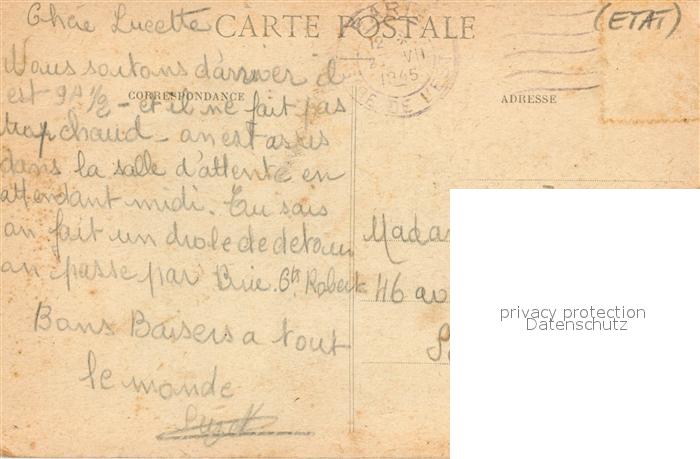 Chée Lucette
CARTE POSTALE
(ETAT)
PARIS
12 *
VII
1945
RE DE L'E
CORRESPONDANCE
ADRESSE
Nous sortons d'arriver il
est 9h ½ - et il ne fait pas
trop chaud - on est assis
dans la salle d'attente en
attendant midi. Tu sais
on fait un drole de detour
on passe par Brie. Cte Robert
Bons Baisers a tout
le monde
Madam
46 av
privacy protection
Datenschutz